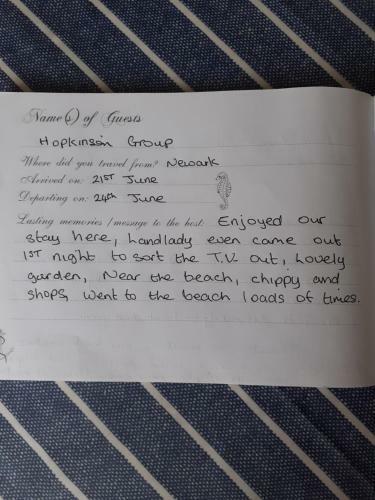 Name(s) of Guests
Hopkinson Group
Where did you travel from? Newark
Arrived on: 21ST June
Departing on: 24th June
Lasting memories / message to the host: Enjoyed our
stay here, handlady even came out
1ST night to sort the T.V. out, Lovely
garden, Near the beach, chippy and
shops, went to the beach loads of times.